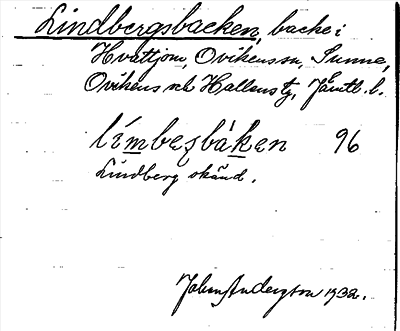 Lindbergsbacken, backe i
Hvattjom, Ovikens sn, Sunne,
Ovikens och Hallens tg, Jämtl. l.
límbesbàken 96
Lindberg okänd.
Johan Anderson 1932.